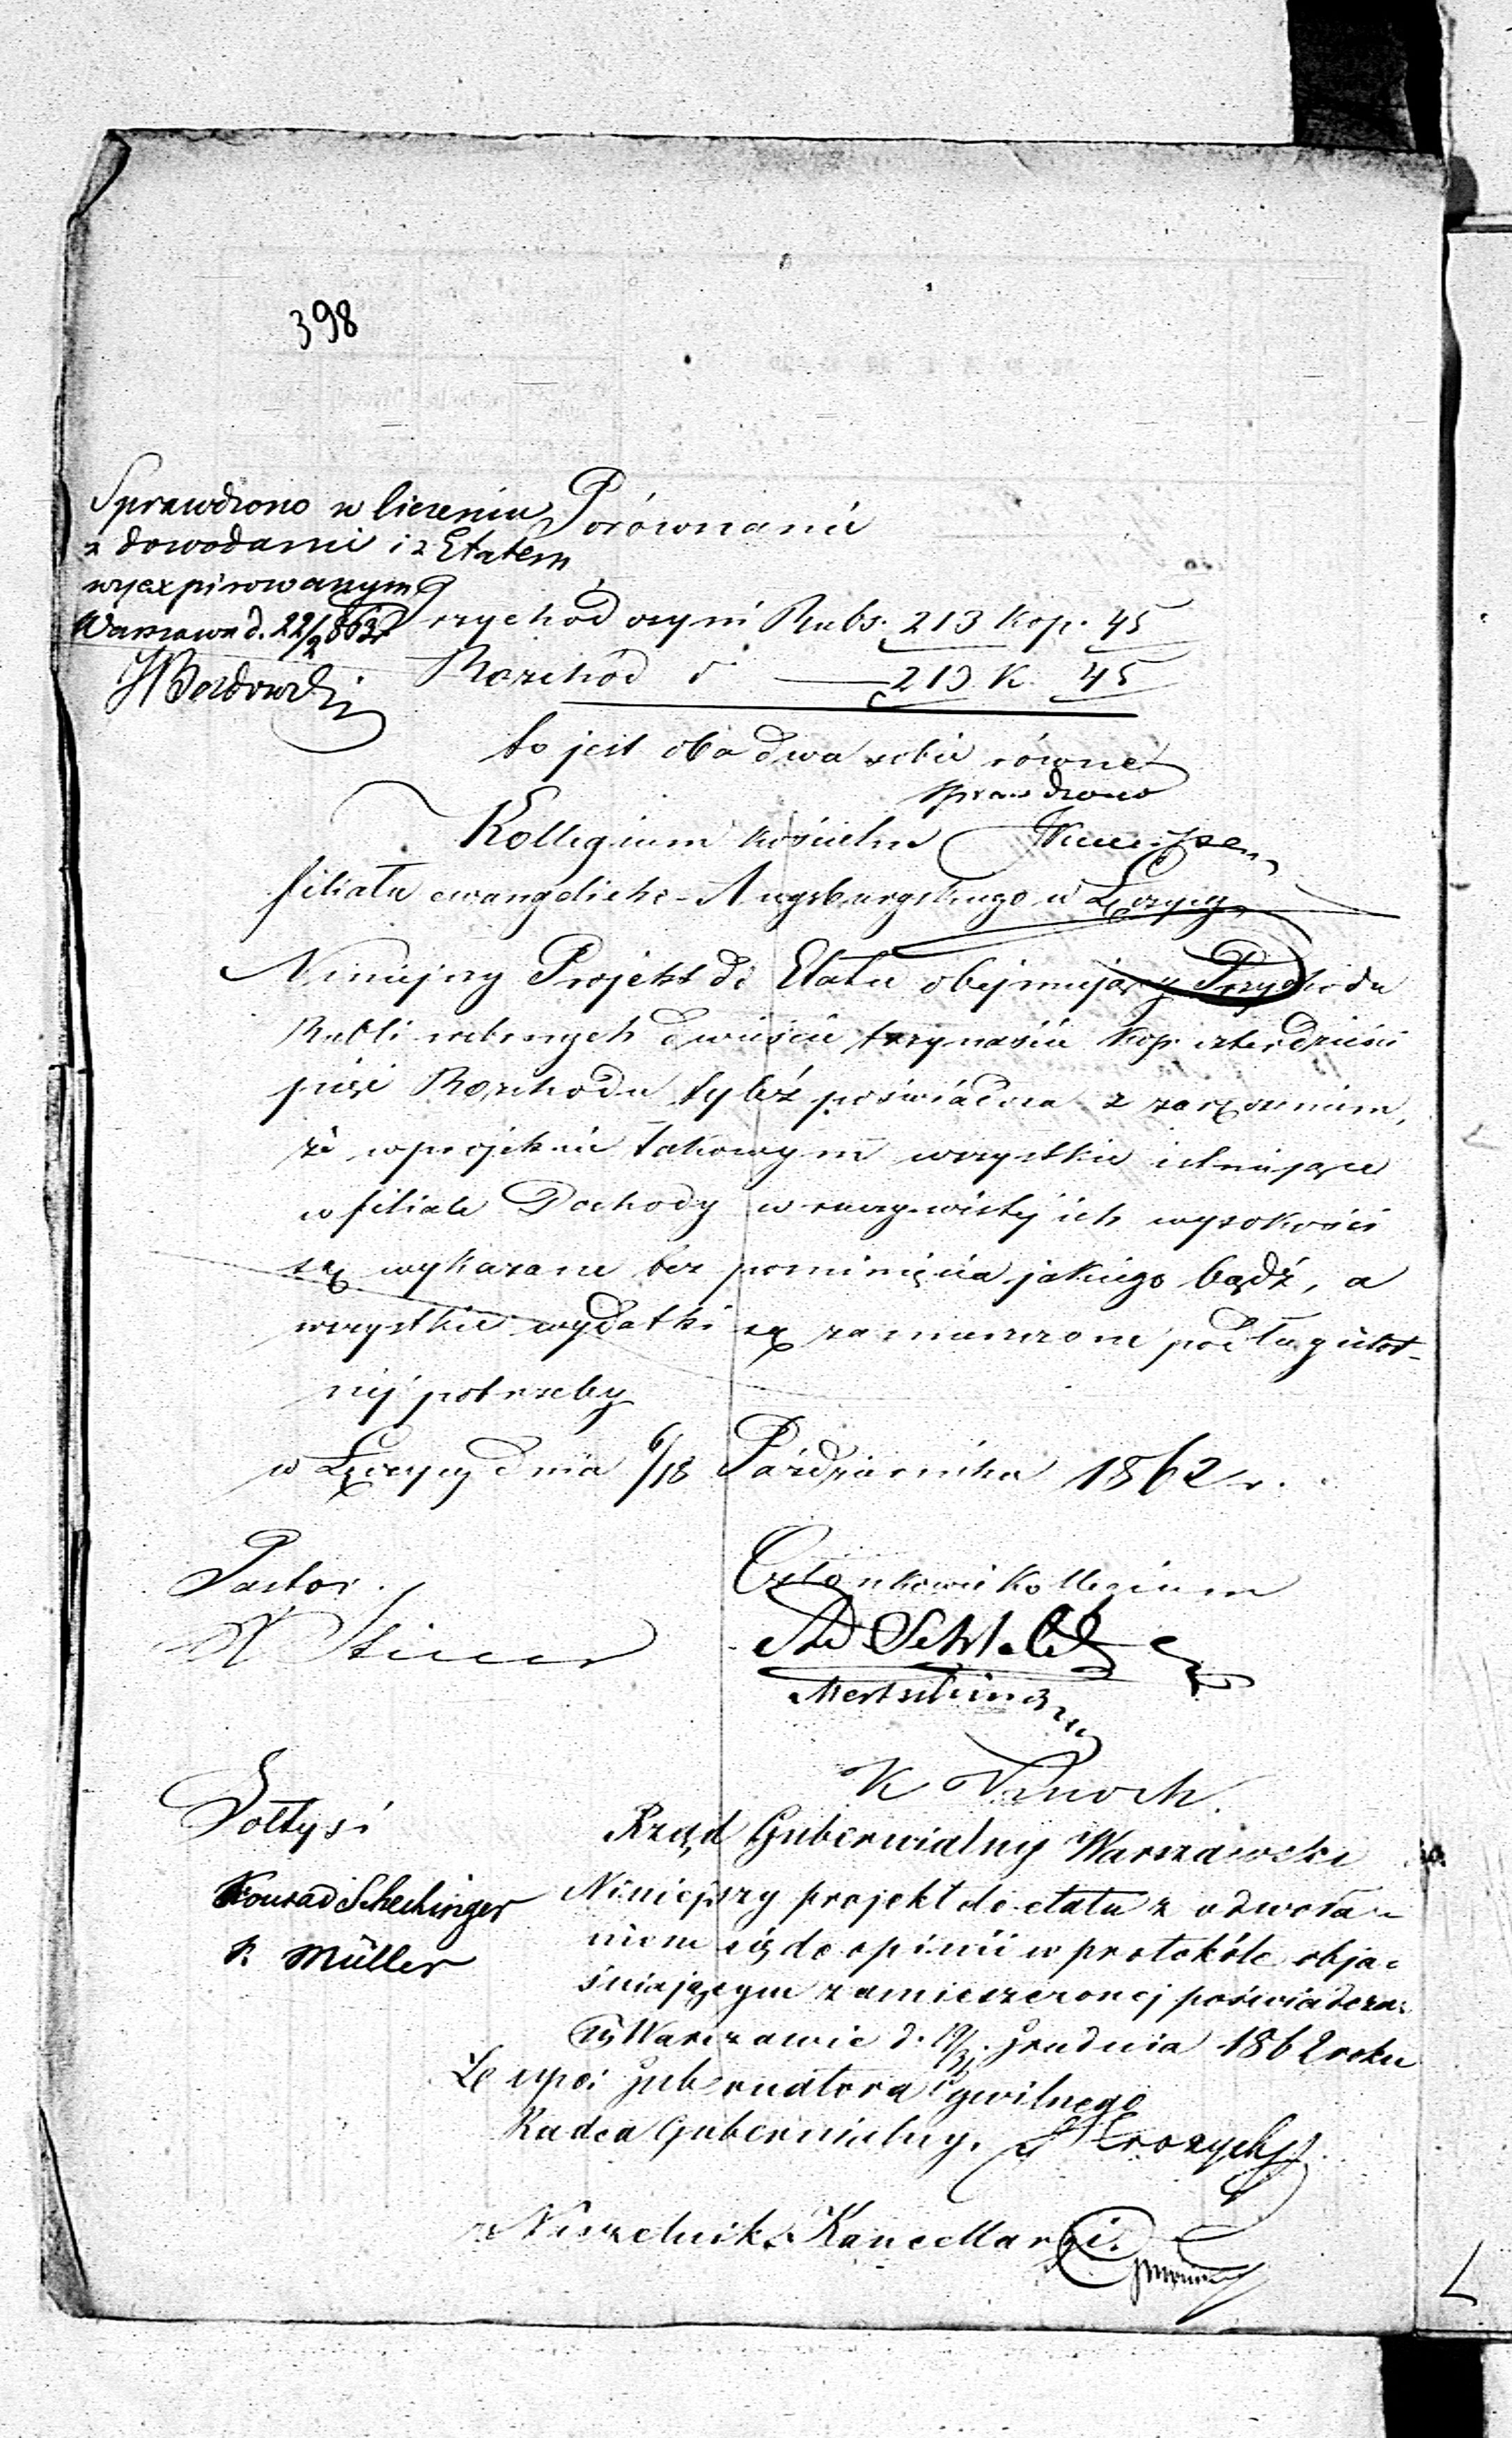 398
Sprawdzono w liczeniu
z dowodami i z Etatem
wyexpirowanym
Warszawa d. 22/2 863 r
Porównanie
Przychód czyni Rubs. 213 kop. 45
Rozchód d — 213 K 45
to jest oba dwa sobie równe
sprawdzono
Kollegium kościelne
filiału ewangelicko-Augsburgskiego w Łęczycy
Niniejszy Projekt do Etatu obejmujący Przychodu
Rubli srebrnych dwieście trzynaście kop. czterdzieści
pięć Rozchodu tyleż poświadcza z zaręczeniem,
że w projekcie takowym wszystkie istniejące
w filiale Dochody w rzeczywistej ich wysokości
są wykazane bez pominięcia jakiego bądź, a
wszystkie wydatki są zamieszczone podług istot-
nej potrzeby
w Łęczycy dnia 6/18 Października 1862 r.
Pastor.
Członkowie Kollegium
K
Sołtysi
Konrad Schechinger
Müller
Rząd Gubernialny Warszawski
Niniejszy projekt do etatu z odwoła=
niem się do opinii w protokóle obja=
śniającym zamieszczonej poświadcza.
W Warszawie d. 19/31 Grudnia 1862 roku
Gubernatora Cywilnego
Radca Gubernialny.
Naczelnik Kancellaryi.